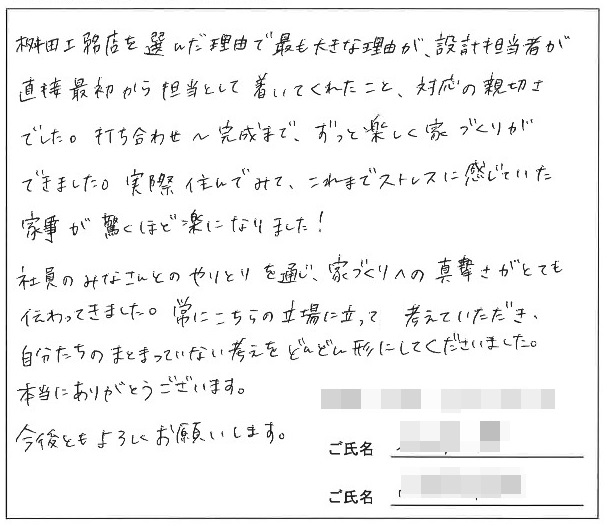 桝田工務店を選んだ理由で最も大きな理由が、設計担当者が
直接最初から担当として着いてくれたこと、対応の親切さ
でした。打ち合わせ～完成まで、ずっと楽しく家づくりが
できました。実際住んでみて、これまでストレスに感じていた
家事が驚くほど楽になりました！
社員のみなさんとのやりとりを通じ、家づくりへの真摯さがとても
伝わってきました。常にこちらの立場に立って考えていただき、
自分たちのまとまっていない考えをどんどん形にしてくださいました。
本当にありがとうございます。
今後ともよろしくお願いします。
ご氏名
ご氏名